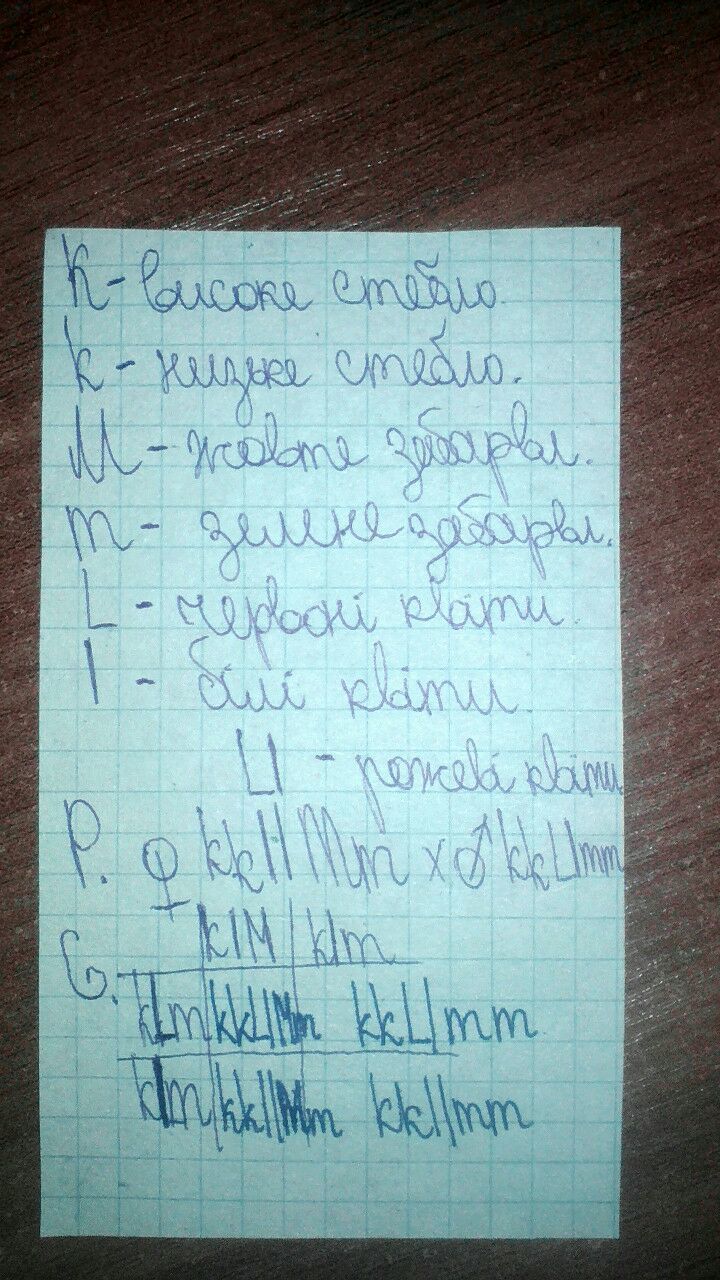 K - високе стебло.
k - низьке стебло.
M - жовте забарвл.
m - зелене забарвл.
L - червоні квіти.
l - білі квіти.
Ll - рожеві квіти
P. ♀ kkllMm x ♂ kkLlmm
G. klM klm
kLm kkLlMm kkLlmm
klm kkllMm kkllmm